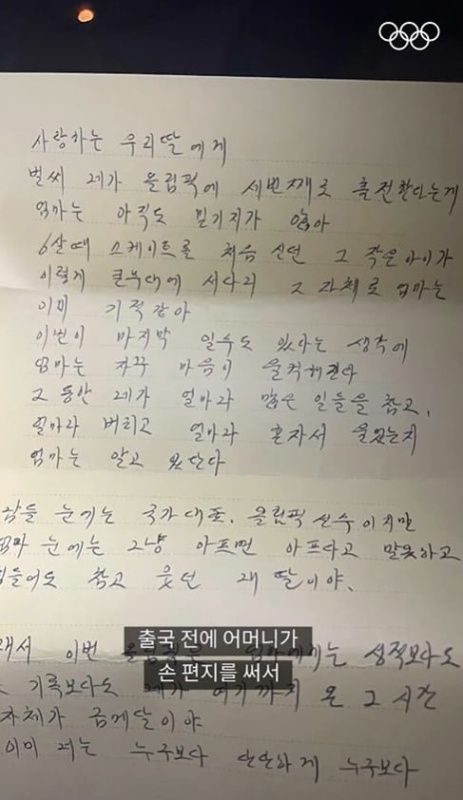 사랑하는 우리딸에게
벌써 네가 올림픽에 세번째로 출전한다는게
엄마는 아직도 믿기지가 않아
6살때 스케이트를 처음 신던 그 작은아이가
이렇게 큰무대에 서다니 그 자체로 엄마는
이미 기적같아
이번이 마지막 일수도 있다는 생각에
엄마는 자꾸 마음이 울컥해진다
그 동안 네가 얼마나 많은 일들을 참고,
얼마나 버리고 얼마나 혼자서 울었는지
엄마는 알고 있단다
눈에는 국가대표, 올림픽 선수이지만
눈에는 그냥 아프면 아프다고 말못하고
참고 웃던 내 딸이야.
이번 성적보다도
기록보다도 네가 여기까지 온 그 시간
자체가 금메달이야
이미 너는 누구보다 단단하게 누구보다
출국 전에 어머니가
손 편지를 써서